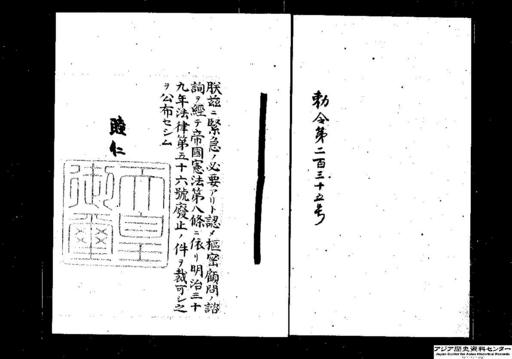 勅令第二百三十五号
朕茲ニ緊急ノ必要アリト認メ樞密顧問ノ諮
詢ヲ經テ帝國憲法第八條ニ依リ明治三十
九年法律第五十六號廢止ノ件ヲ裁可シ之
ヲ公布セシム
睦仁
天皇
御璽
アジア歴史資料センター
Japan Center for Asian Historical Records